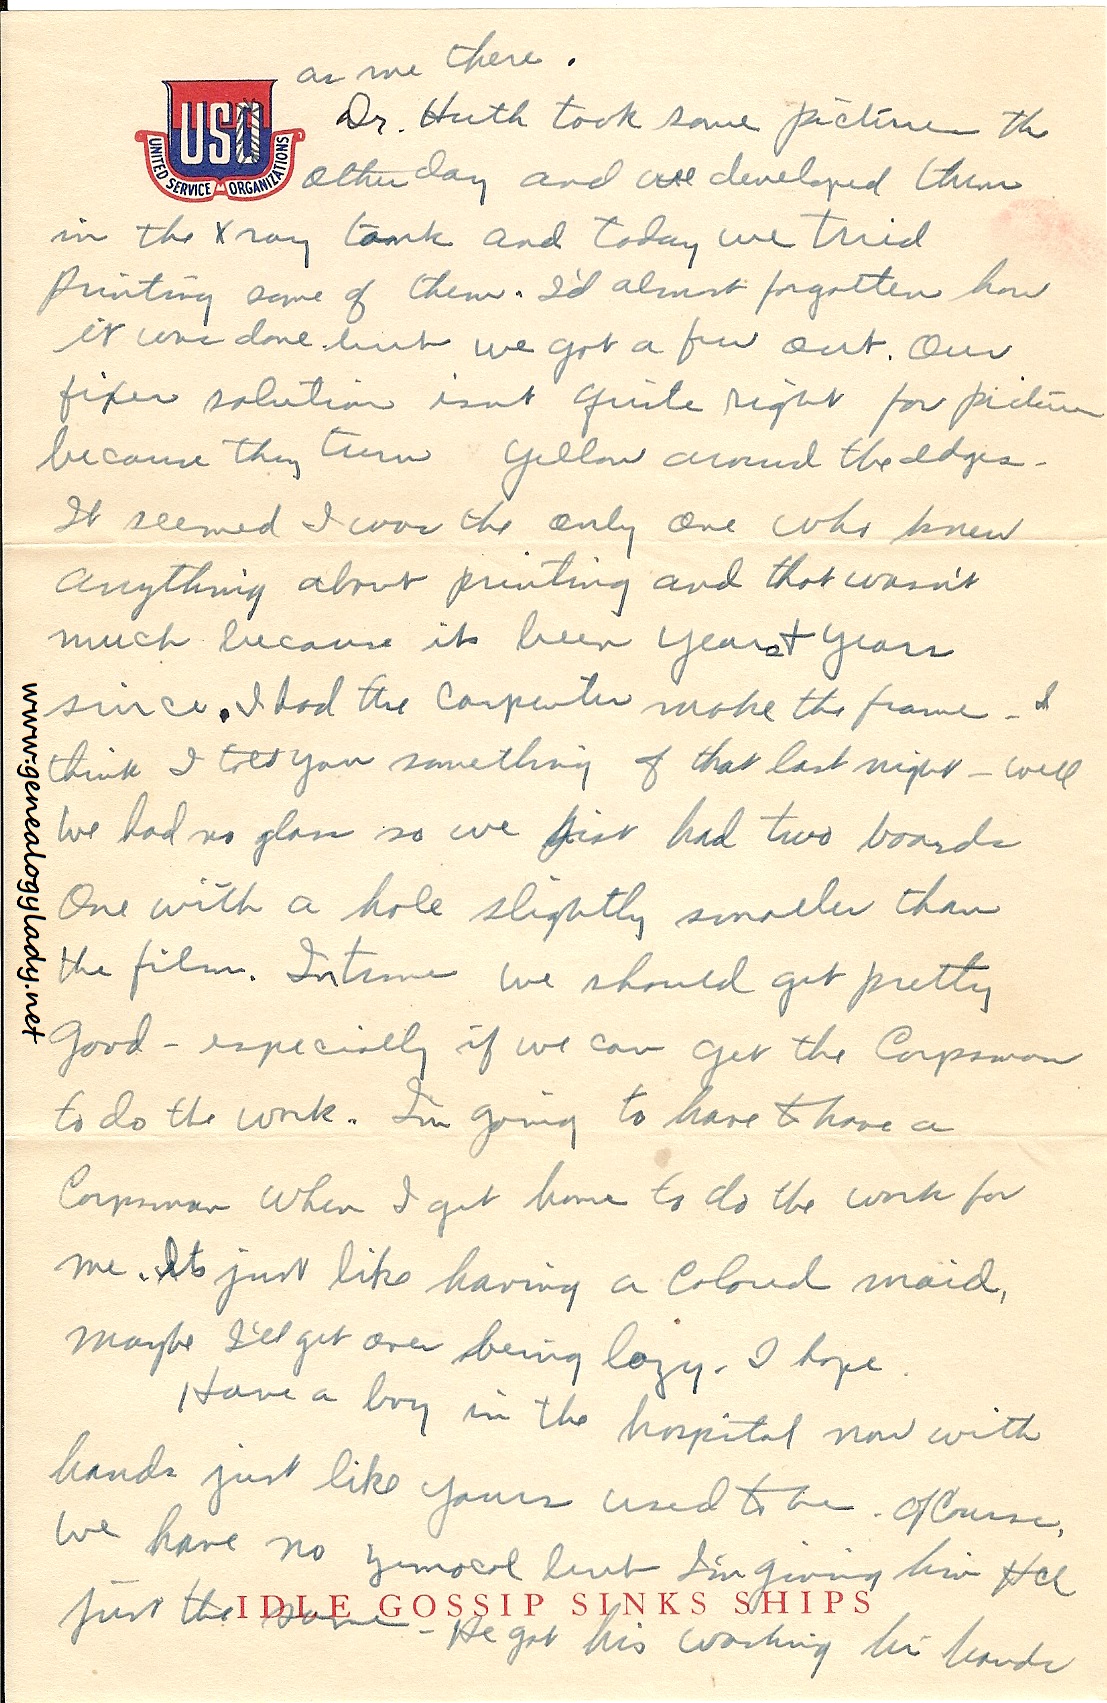 as me there.
USO
UNITED SERVICE ORGANIZATIONS
Dr. Huth took some pictures the
other day and we developed them
in the Xray tank and today we tried
printing some of them. I'd almost forgotten how
it was done but we got a few out. Our
fixer solution isnt quite right for pictures
because they turn yellow around the edges -
It seemed I was the only one who knew
anything about printing and that wasn't
much because its been years + years
since. I had the carpenter make the frame - I
think I told you something of that last night - well
we had no glass so we just had two boards
One with a hole slightly smaller than
the film. In time we should get pretty
good - especially if we can get the Corpsman
to do the work. I'm going to have to have a
Corpsman when I get home to do the work for
me. Its just like having a Colored maid,
maybe I'll get over being lazy. I hope.
Have a boy in the hospital now with
hands just like yours used to be. Of course,
we have no but I'm giving him HCl
just the same - He got his washing his hands
IDLE GOSSIP SINKS SHIPS
www.genealogylady.net